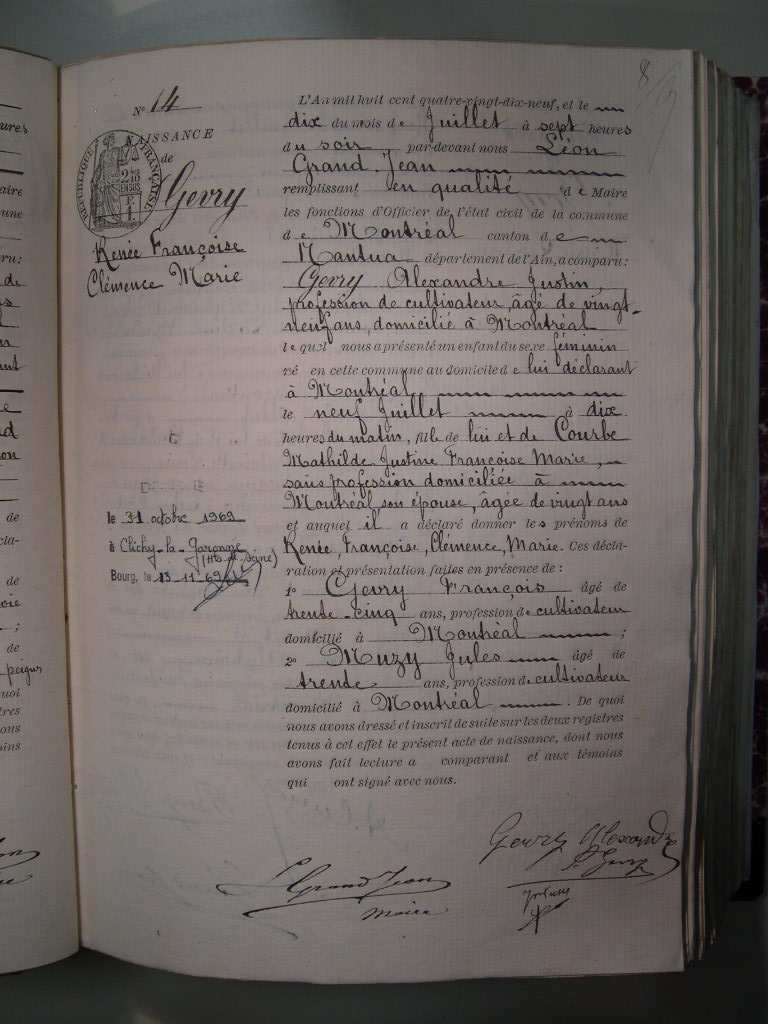 8
N° 14
NAISSANCE
de
RÉPUBLIQUE FRANÇAISE
Gevry
Renée Françoise
Clémence Marie
L'An mil huit cent quatre-vingt-dix-neuf, et le
dix du mois de Juillet à sept heures
du soir par-devant nous Léon
Grand Jean
remplissant en qualité de Maire
les fonctions d'Officier de l'état civil de la commune
de Montréal canton de
Nantua département de l'Ain, a comparu:
Gevry Alexandre Justin,
profession de cultivateur, âgé de vingt-
neuf ans, domicilié à Montréal
lequel nous a présenté un enfant du sexe féminin
né en cette commune au domicile de lui déclarant
à Montréal
le neuf Juillet à dix
heures du matin, fille de lui et de Courbe
Mathilde Justine Françoise Marie,
sans profession domiciliée à
Montréal, son épouse, âgée de vingt ans
et auquel il a déclaré donner les prénoms de
Renée, Françoise, Clémence, Marie. Ces décla-
ration et présentation faites en présence de :
1° Gevry François âgé de
trente-cinq ans, profession de cultivateur
domicilié à Montréal ;
2° Muzy Jules âgé de
trente ans, profession de cultivateur
domicilié à Montréal. De quoi
nous avons dressé et inscrit de suite sur les deux registres
tenus à cet effet le présent acte de naissance, dont nous
avons fait lecture a comparant et aux témoins
qui ont signé avec nous.
le 31 octobre 1969
à Clichy-la-Garenne
(Hts de Seine)
Bourg, le 13-11-69
Gevry Alexandre
L Grand Jean
maire